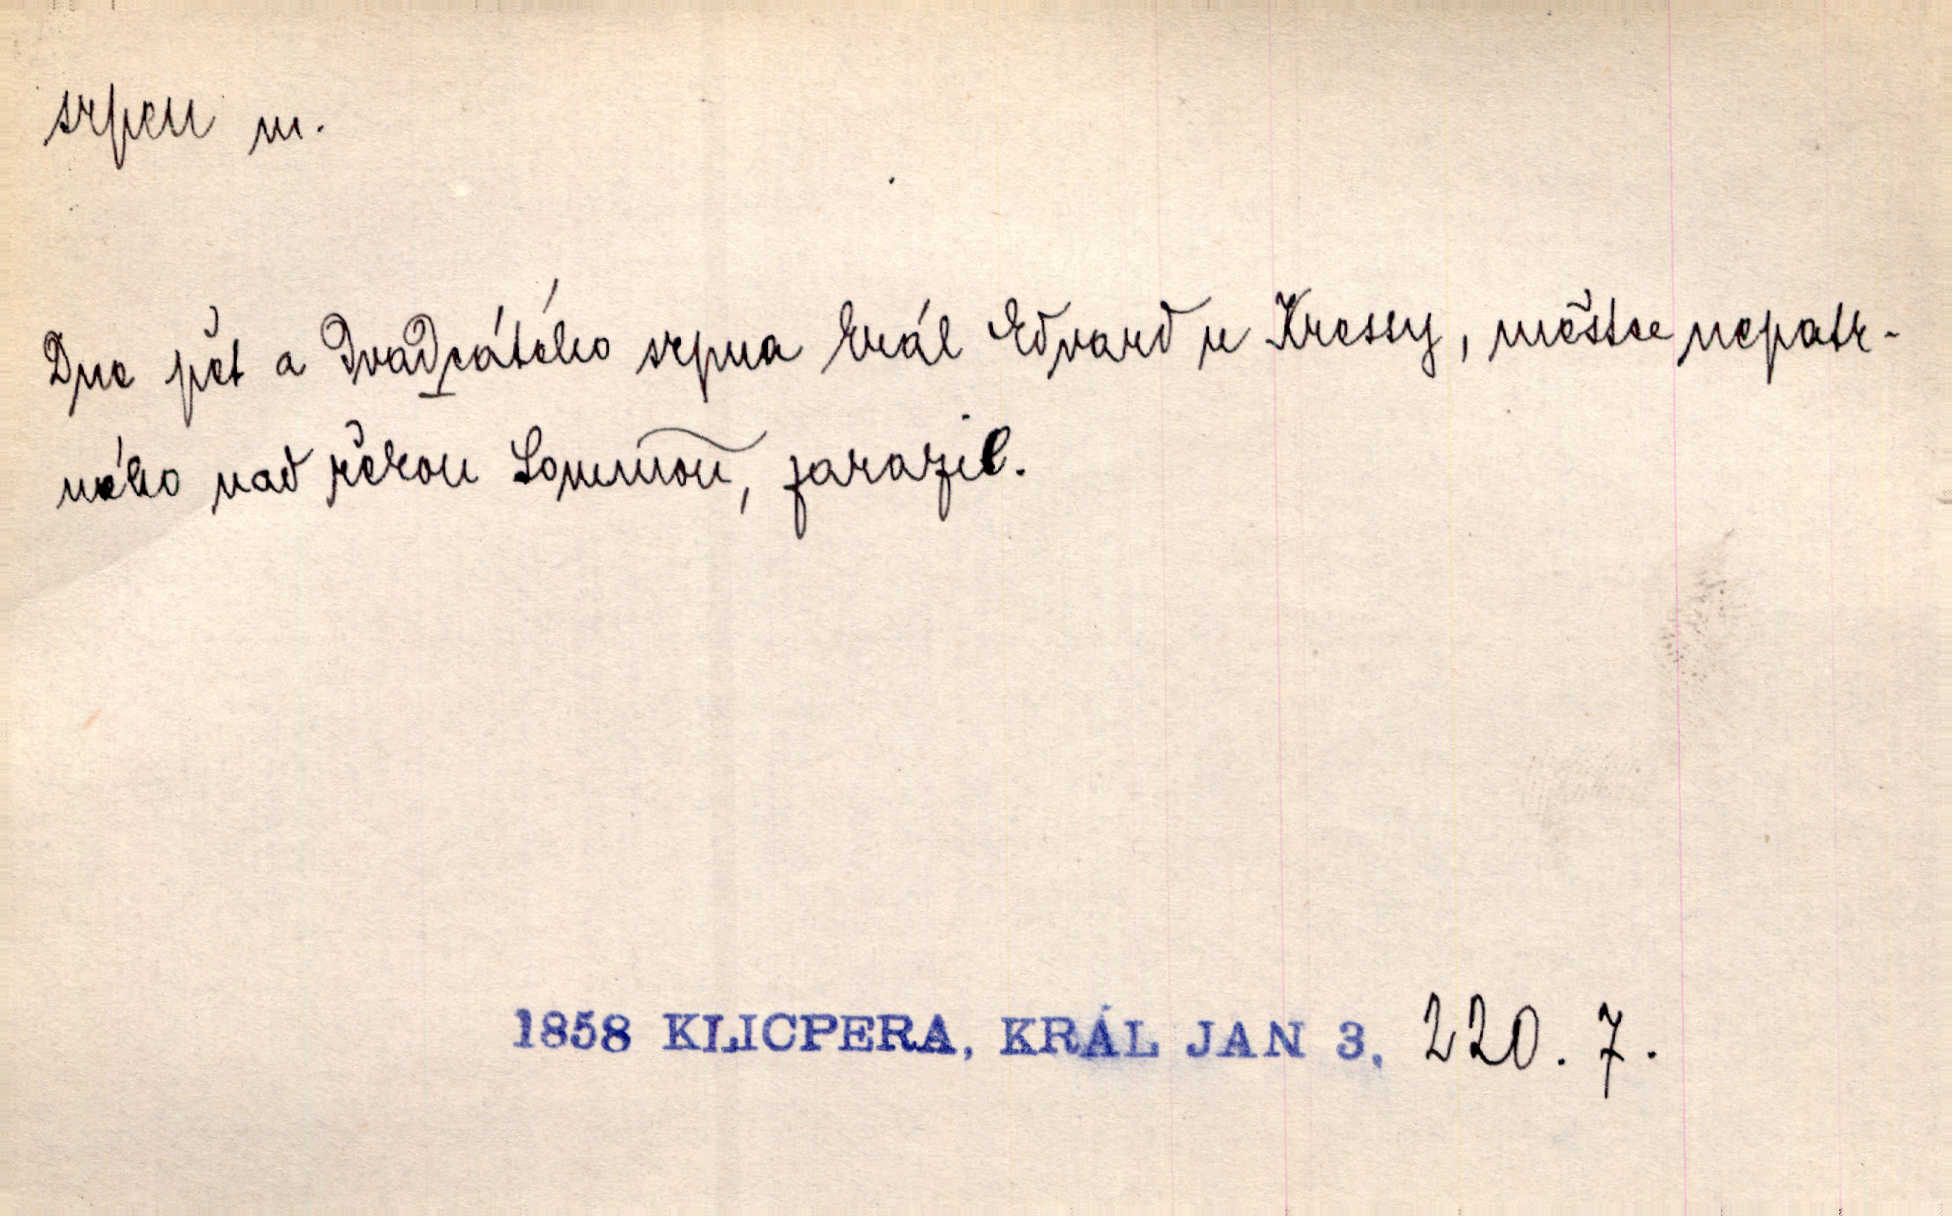 srpen m.
Dne pět a dvadcátého srpna král Edvard u Kressy, městce nepatr-
ného nad řekou Sommou, zarazil.
1858 KLICPERA, KRÁL JAN 3, 220. 7.